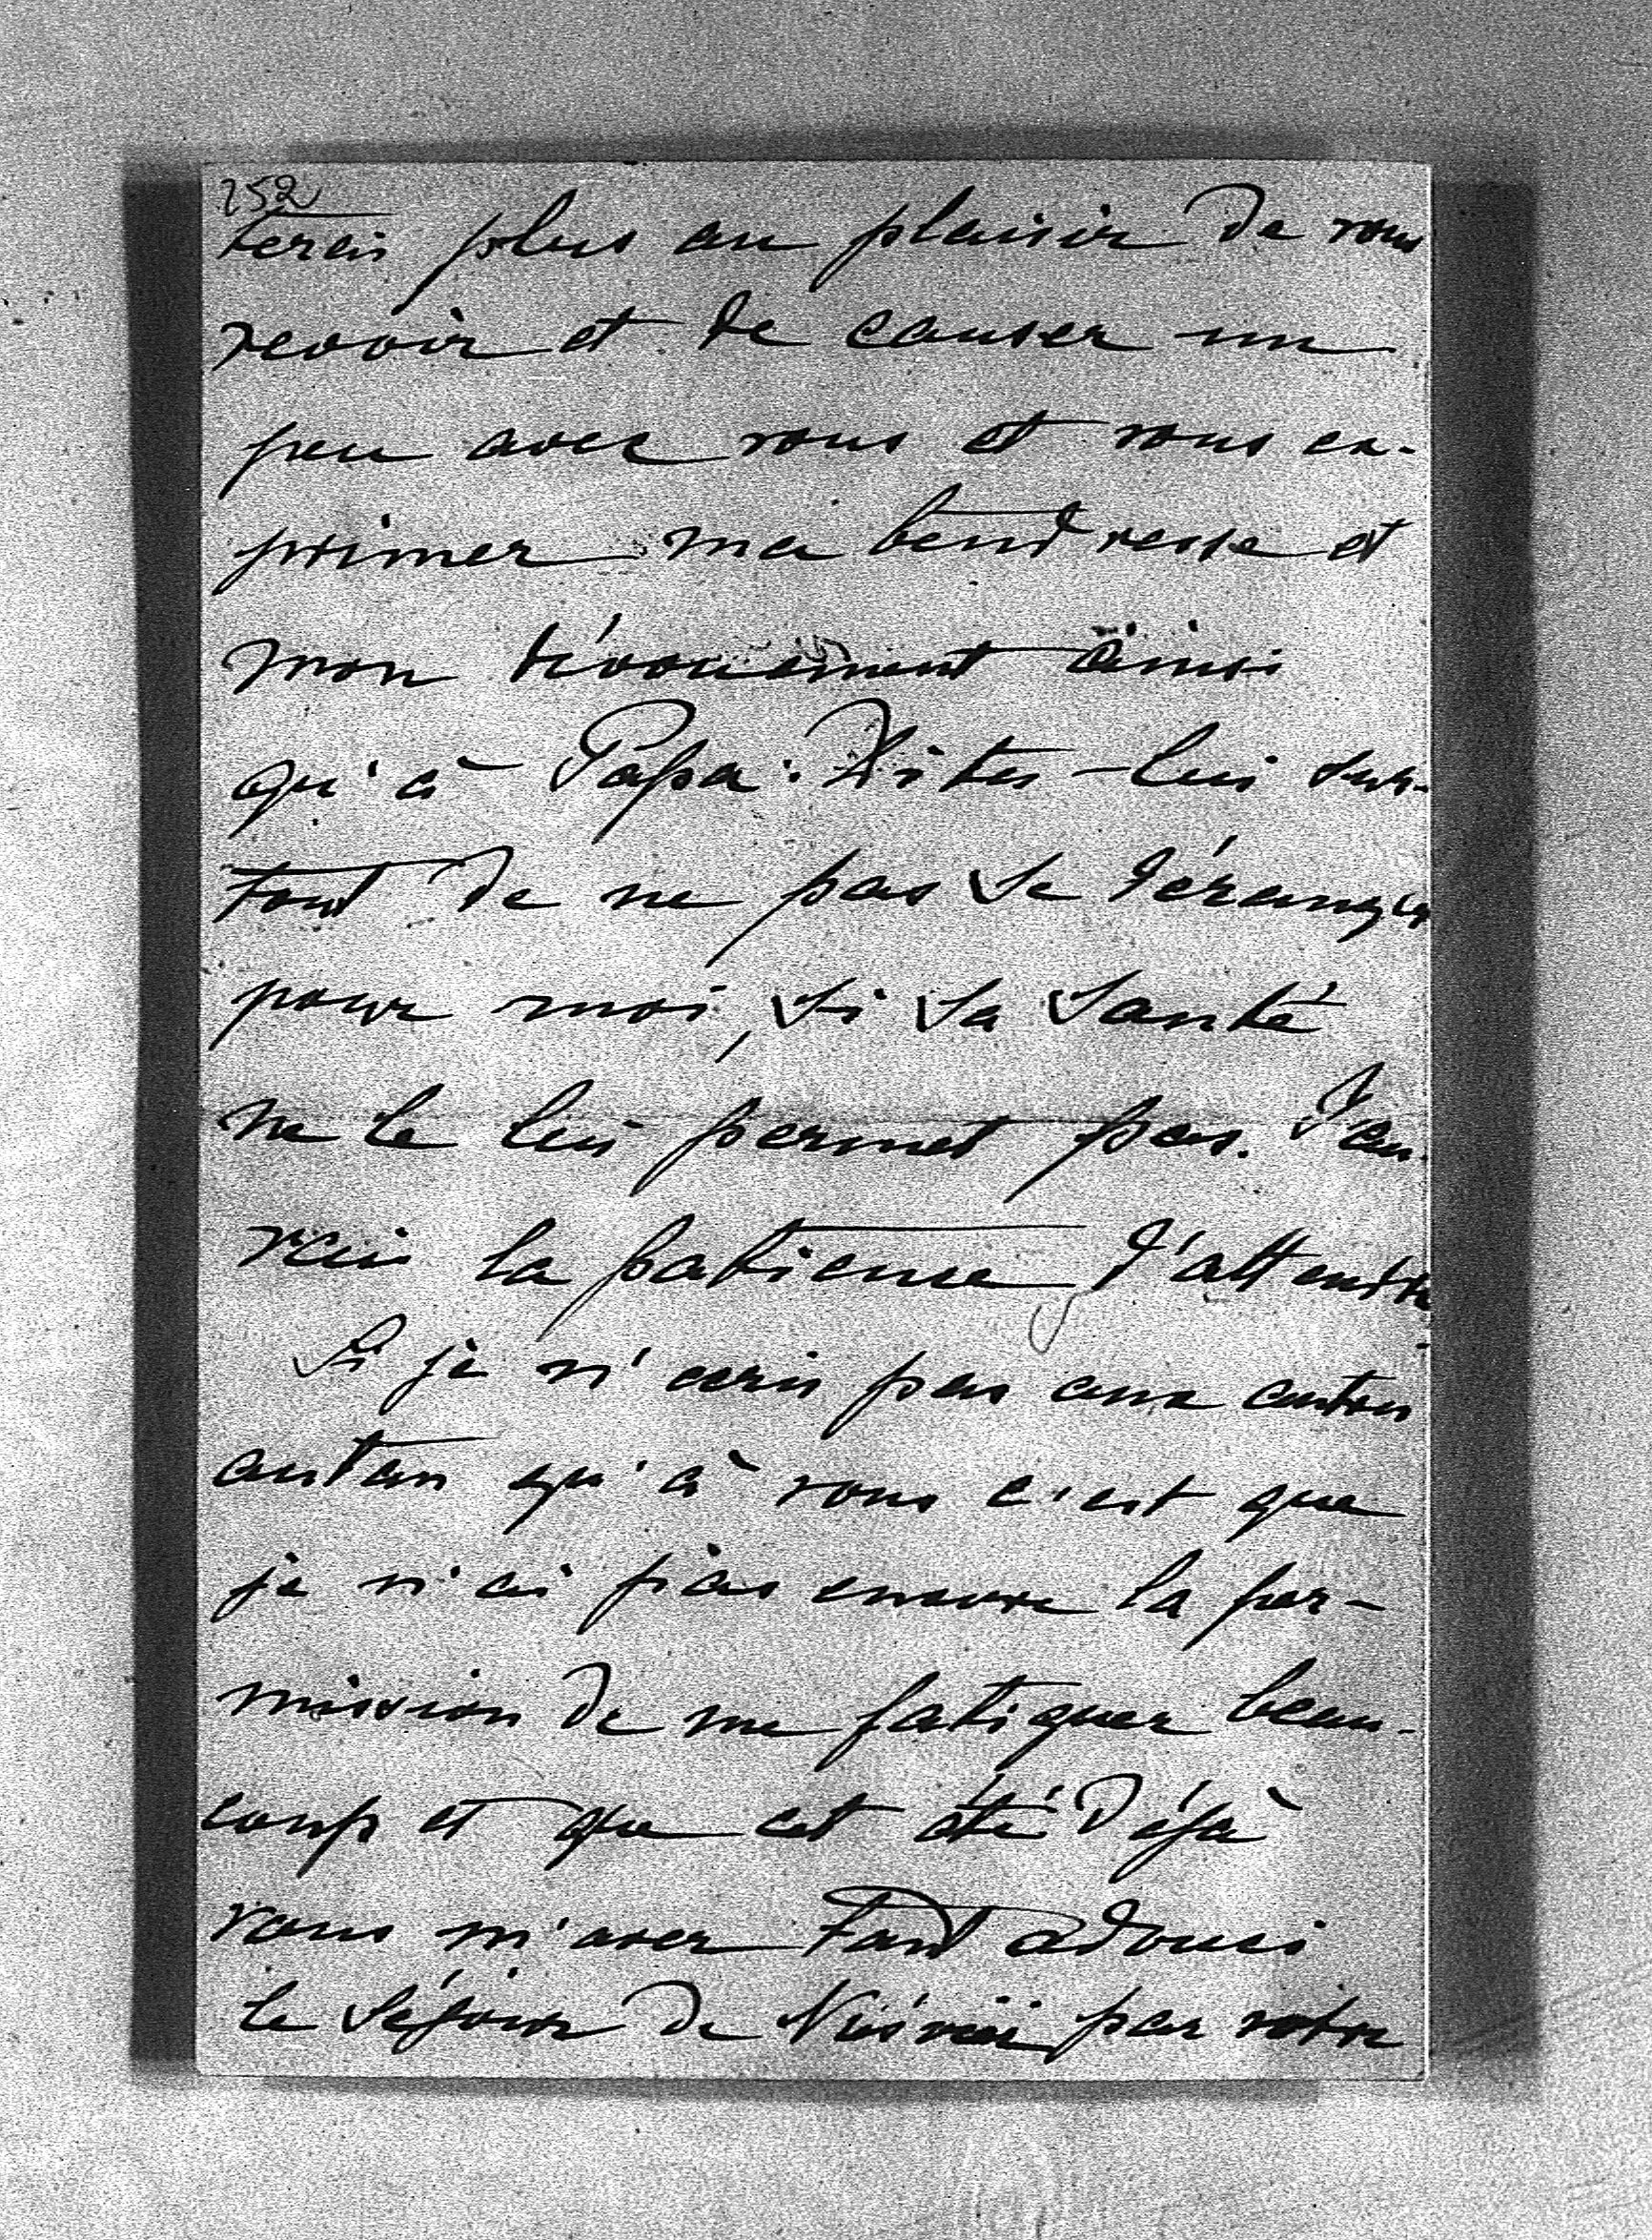 252
terais plus au plaisir de vous
revoir et de causer un
peu avec vous et vous ex-
primer ma tendresse et
mon dévouement ainsi
qu'à Papa. Dites-lui sur-
tout de ne pas se déranger
pour moi, si sa santé
ne le lui permet pas. J'au-
rai la patience d'attendre
Si je n'ecris pas aux autres
autan qu'à vous c'est que
je n'ai pas encore la per-
mission de me fatiguer beau-
coup et que cet été déjà
vous m'avez tant adouci
le séjour de par votre